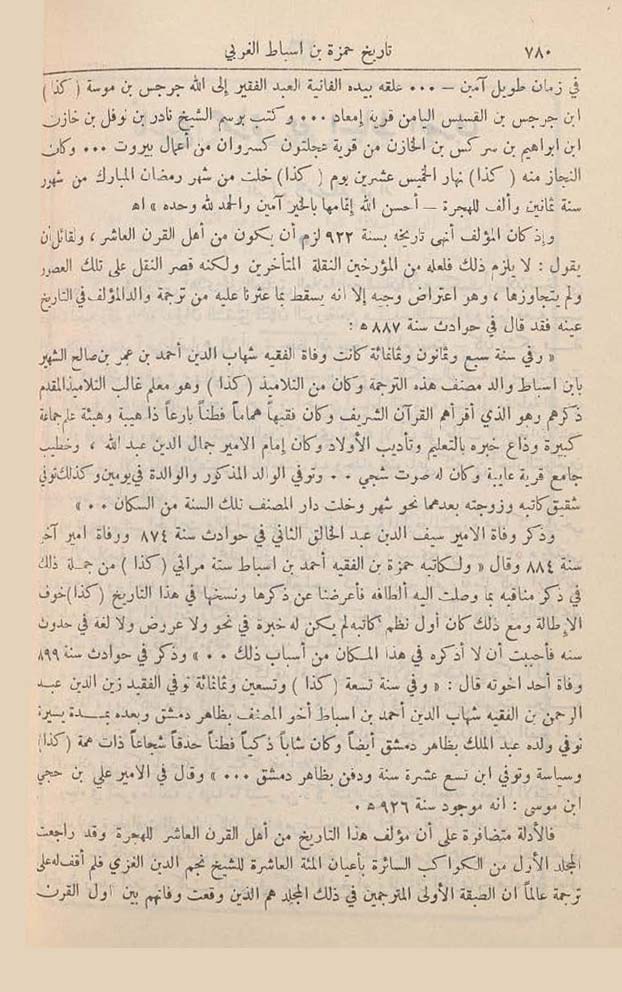 ٧٨٠ تاريخ حمزة بن اسباط الغربي
في زمان طويل آمين — ٠٠٠ علقه بيده الفانية العبد الفقير إلى الله جرجس بن موسة ( كذا )
ابن جرجس بن القسيس اليامن قرية إمعاد ٠٠٠ وكتب برسم الشيخ نادر بن نوفل بن خازن
ابن ابراهيم بن سركس بن الخازن من قرية عجلتون كسروان من أعمال بيروت ٠٠٠ وكان
النجاز منه ( كذا ) نهار الخميس عشرين يوم ( كذا ) خلت من شهر رمضان المبارك من شهور
سنة ثمانين وألف للهجرة — أحسن الله إتمامها بالخير آمين والحمد لله وحده » اه
وإذ كان المؤلف أنهى تاريخه بسنة ٩٢٢ لزم أن يكون من أهل القرن العاشر ، ولقائل أن
يقول : لا يلزم ذلك فلعله من المؤرخين النقلة المتأخرين ولكنه قصر النقل على تلك العصور
ولم يتجاوزها ، وهو اعتراض وجيه إلا انه يسقط بما عثرنا عليه من ترجمة والد المؤلف في التاريخ
عينه فقد قال في حوادث سنة ٨٨٧ ه :
« وفي سنة سبع وثمانون وثمانمائة كانت وفاة الفقيه شهاب الدين أحمد بن عمر بن صالح الشهير
بابن اسباط والد مصنف هذه الترجمة وكان من التلاميذ ( كذا ) وهو معلم غالب التلاميذ المقدم
ذكرهم وهو الذي أقرأهم القرآن الشريف وكان فقيهاً هماماً فطناً بارعاً ذا هيبة وهيئة علم جماعة
كبيرة وذاع خبره بالتعليم وتأديب الأولاد وكان إمام الامير جمال الدين عبد الله ، وخطيب
جامع قرية عابية وكان له صوت شجي ٠٠ وتوفي الوالد المذكور والوالدة في يومين وكذلك توفي
شقيق كاتبه وزوجته بعدهما نحو شهر وخلت دار المصنف تلك السنة من السكان ٠٠ »
وذكر وفاة الامير سيف الدين عبد الخالق الثاني في حوادث سنة ٨٧٤ ووفاة امير آخر
سنة ٨٨٤ وقال « ولكاتبه حمزة بن الفقيه أحمد بن اسباط ستة مراثي ( كذا ) من جملة ذلك
في ذكر مناقبه بما وصلت اليه ألطافه فأعرضنا عن ذكرها ونسخها في هذا التاريخ ( كذا ) خوف
الإطالة ومع ذلك كان أول نظم كاتبه لم يكن له خبرة في نحو ولا عروض ولا لغة في حدوث
سنه فأحببت أن لا أذكره في هذا المكان من أسباب ذلك ٠٠ » وذكر في حوادث سنة ٨٩٩
وفاة أحد اخوته قال : « وفي سنة تسعة ( كذا ) وتسعين وثمانمائة توفي الفقيد زين الدين عبد
الرحمن بن الفقيه شهاب الدين أحمد بن اسباط أخو المصنف بظاهر دمشق وبعده بمدة يسيرة
توفي ولده عبد الملك بظاهر دمشق أيضاً وكان شاباً ذكياً فطناً حذقاً شجاعاً ذات همة ( كذا )
وسياسة وتوفي ابن تسع عشرة سنة ودفن بظاهر دمشق ٠٠٠ » وقال في الامير علي بن حجي
ابن موسى : انه موجود سنة ٩٢٦ ه ٠
فالأدلة متضافرة على أن مؤلف هذا التاريخ من أهل القرن العاشر للهجرة وقد راجعت
المجلد الأول من الكواكب السائرة بأعيان المئة العاشرة للشيخ نجم الدين الغزي فلم أقف له على
ترجمة عالماً ان الصبقة الأولى المترجمين في ذلك المجلد هم الذين وقعت وفاتهم بين اول القرن